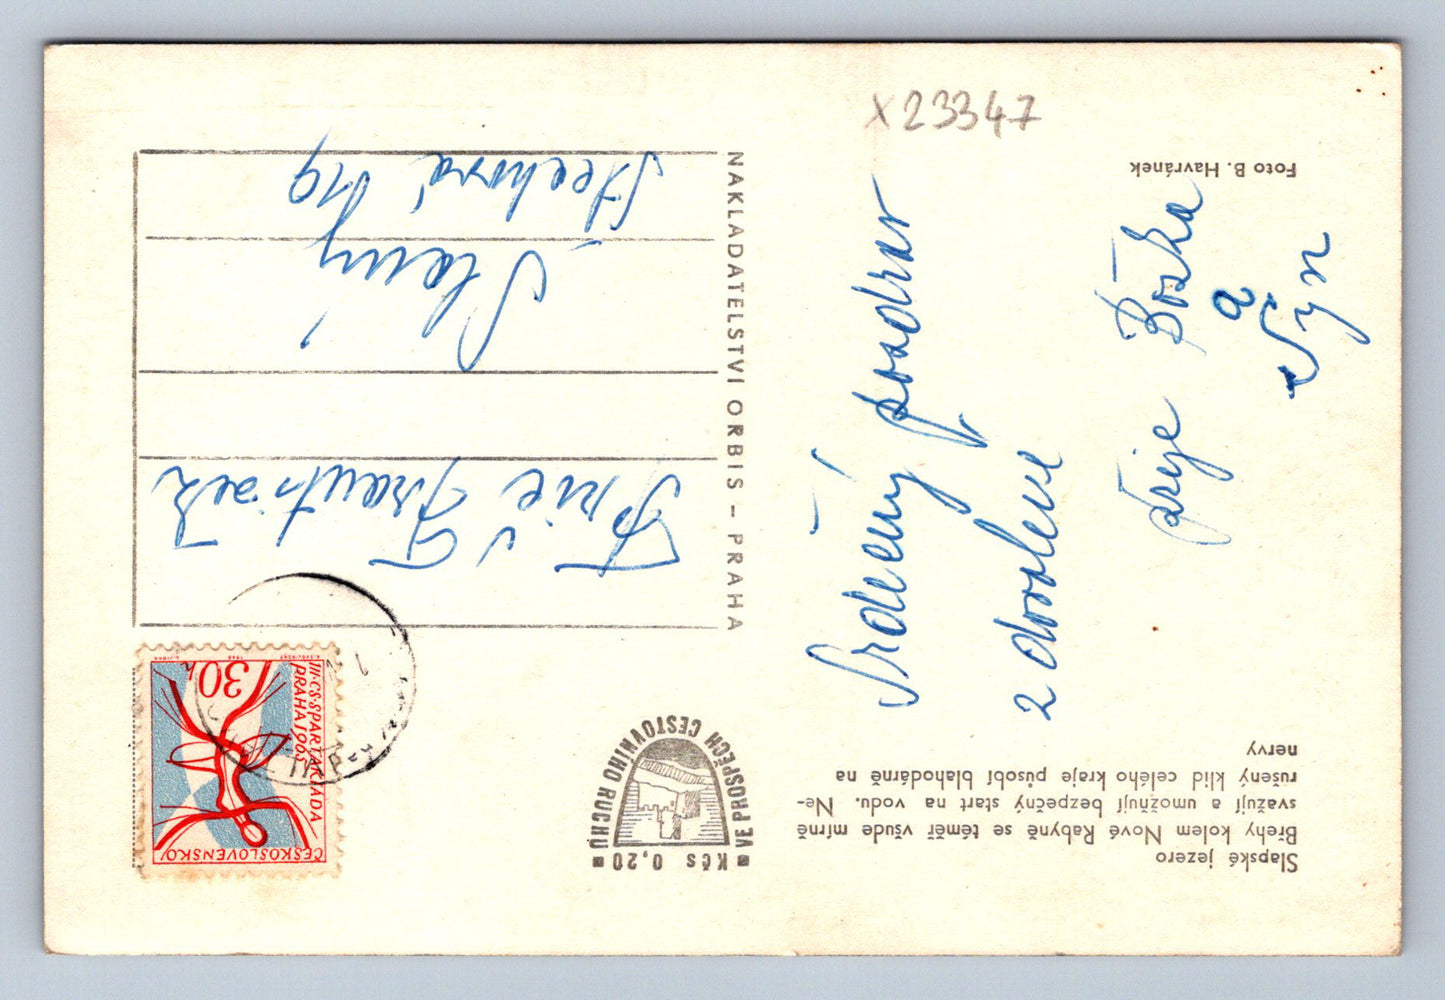 Slapské jezero
Břehy kolem Nové Rabyně se téměř všude mírně
svažují a umožňují bezpečný start na vodu. Ne-
rušený klid celého kraje působí blahodárně na
nervy
Srdečný pozdrav
z dovolené
přeje Božka
a
Syn
Foto B. Havránek
x 23347
NAKLADATELSTVÍ ORBIS – PRAHA
Kčs 0,20
VE PROSPĚCH CESTOVNÍHO RUCHU
ČESKOSLOVENSKO
III·CS·SPARTAKIÁDA
PRAHA 1965
30
Slaný